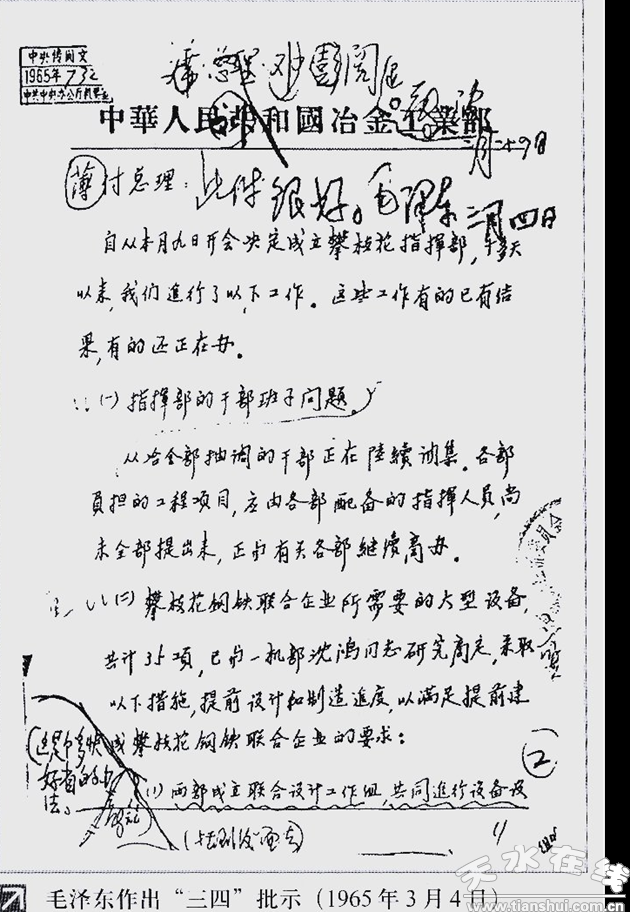 中央传阅文
1965年
中共中央办公厅机要室
主席、总理、邓、彭阅退
中華人民共和國冶金工業部
二月二十九日
薄付总理：
此件很好。毛泽东 三月四日
自从本月九日开会决定成立攀枝花指挥部，半多天
以来，我们进行了以下工作。这些工作有的已有结
果，有的还正在办。
(一) 指挥部的干部班子问题。
从冶金部抽调的干部正在陆續调集。各部
負担的工程项目，应由各部配备的指挥人员，尚
未全部提出来，正与有关各部継續商办。
(二) 攀枝花钢铁联合企业所需要的大型设备，
共计35項，已与一机部沈鸿同志研究商定，采取
以下措施，提前设计和制造進度，以满足提前建
成攀枝花钢铁联合企业的要求：
(1) 两部成立联合设计工作组，共同進行设备设
这是个多快
好省的办
法。
2
天水在线
www.tianshui.com.cn
毛泽东作出“三四”批示（1965年3月4日）